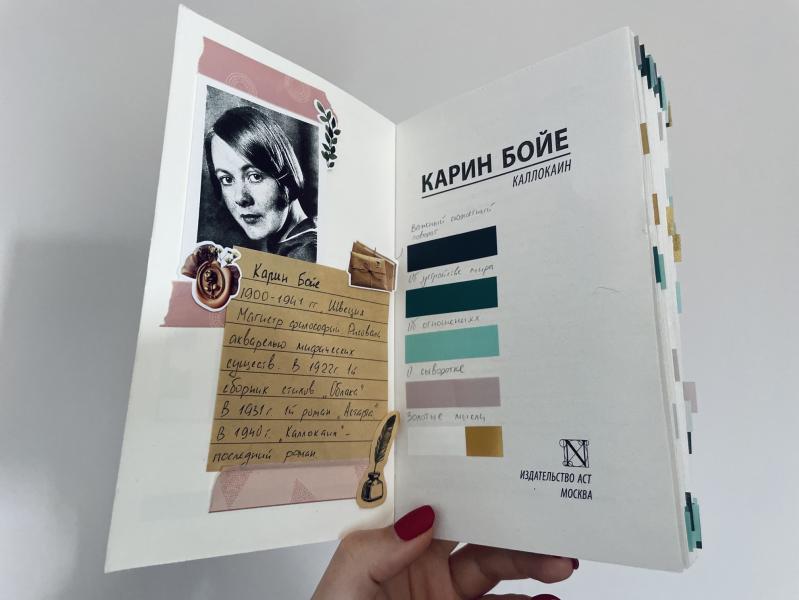 Карин Бойе
1900-1941 гг. Швеция
Магистр философии. Рисовала
акварелью мифических
существ. В 1922г 1й
сборник стихов „Облака"
В 1931г. 1й роман „Астарта"
В 1940г. „Каллокаин" -
последний роман.
КАРИН БОЙЕ
КАЛЛОКАИН
Важный сюжетный
поворот
Об устройстве мира
Об отношениях
О сыворотке
Золотые мысли
N
ИЗДАТЕЛЬСТВО АСТ
МОСКВА